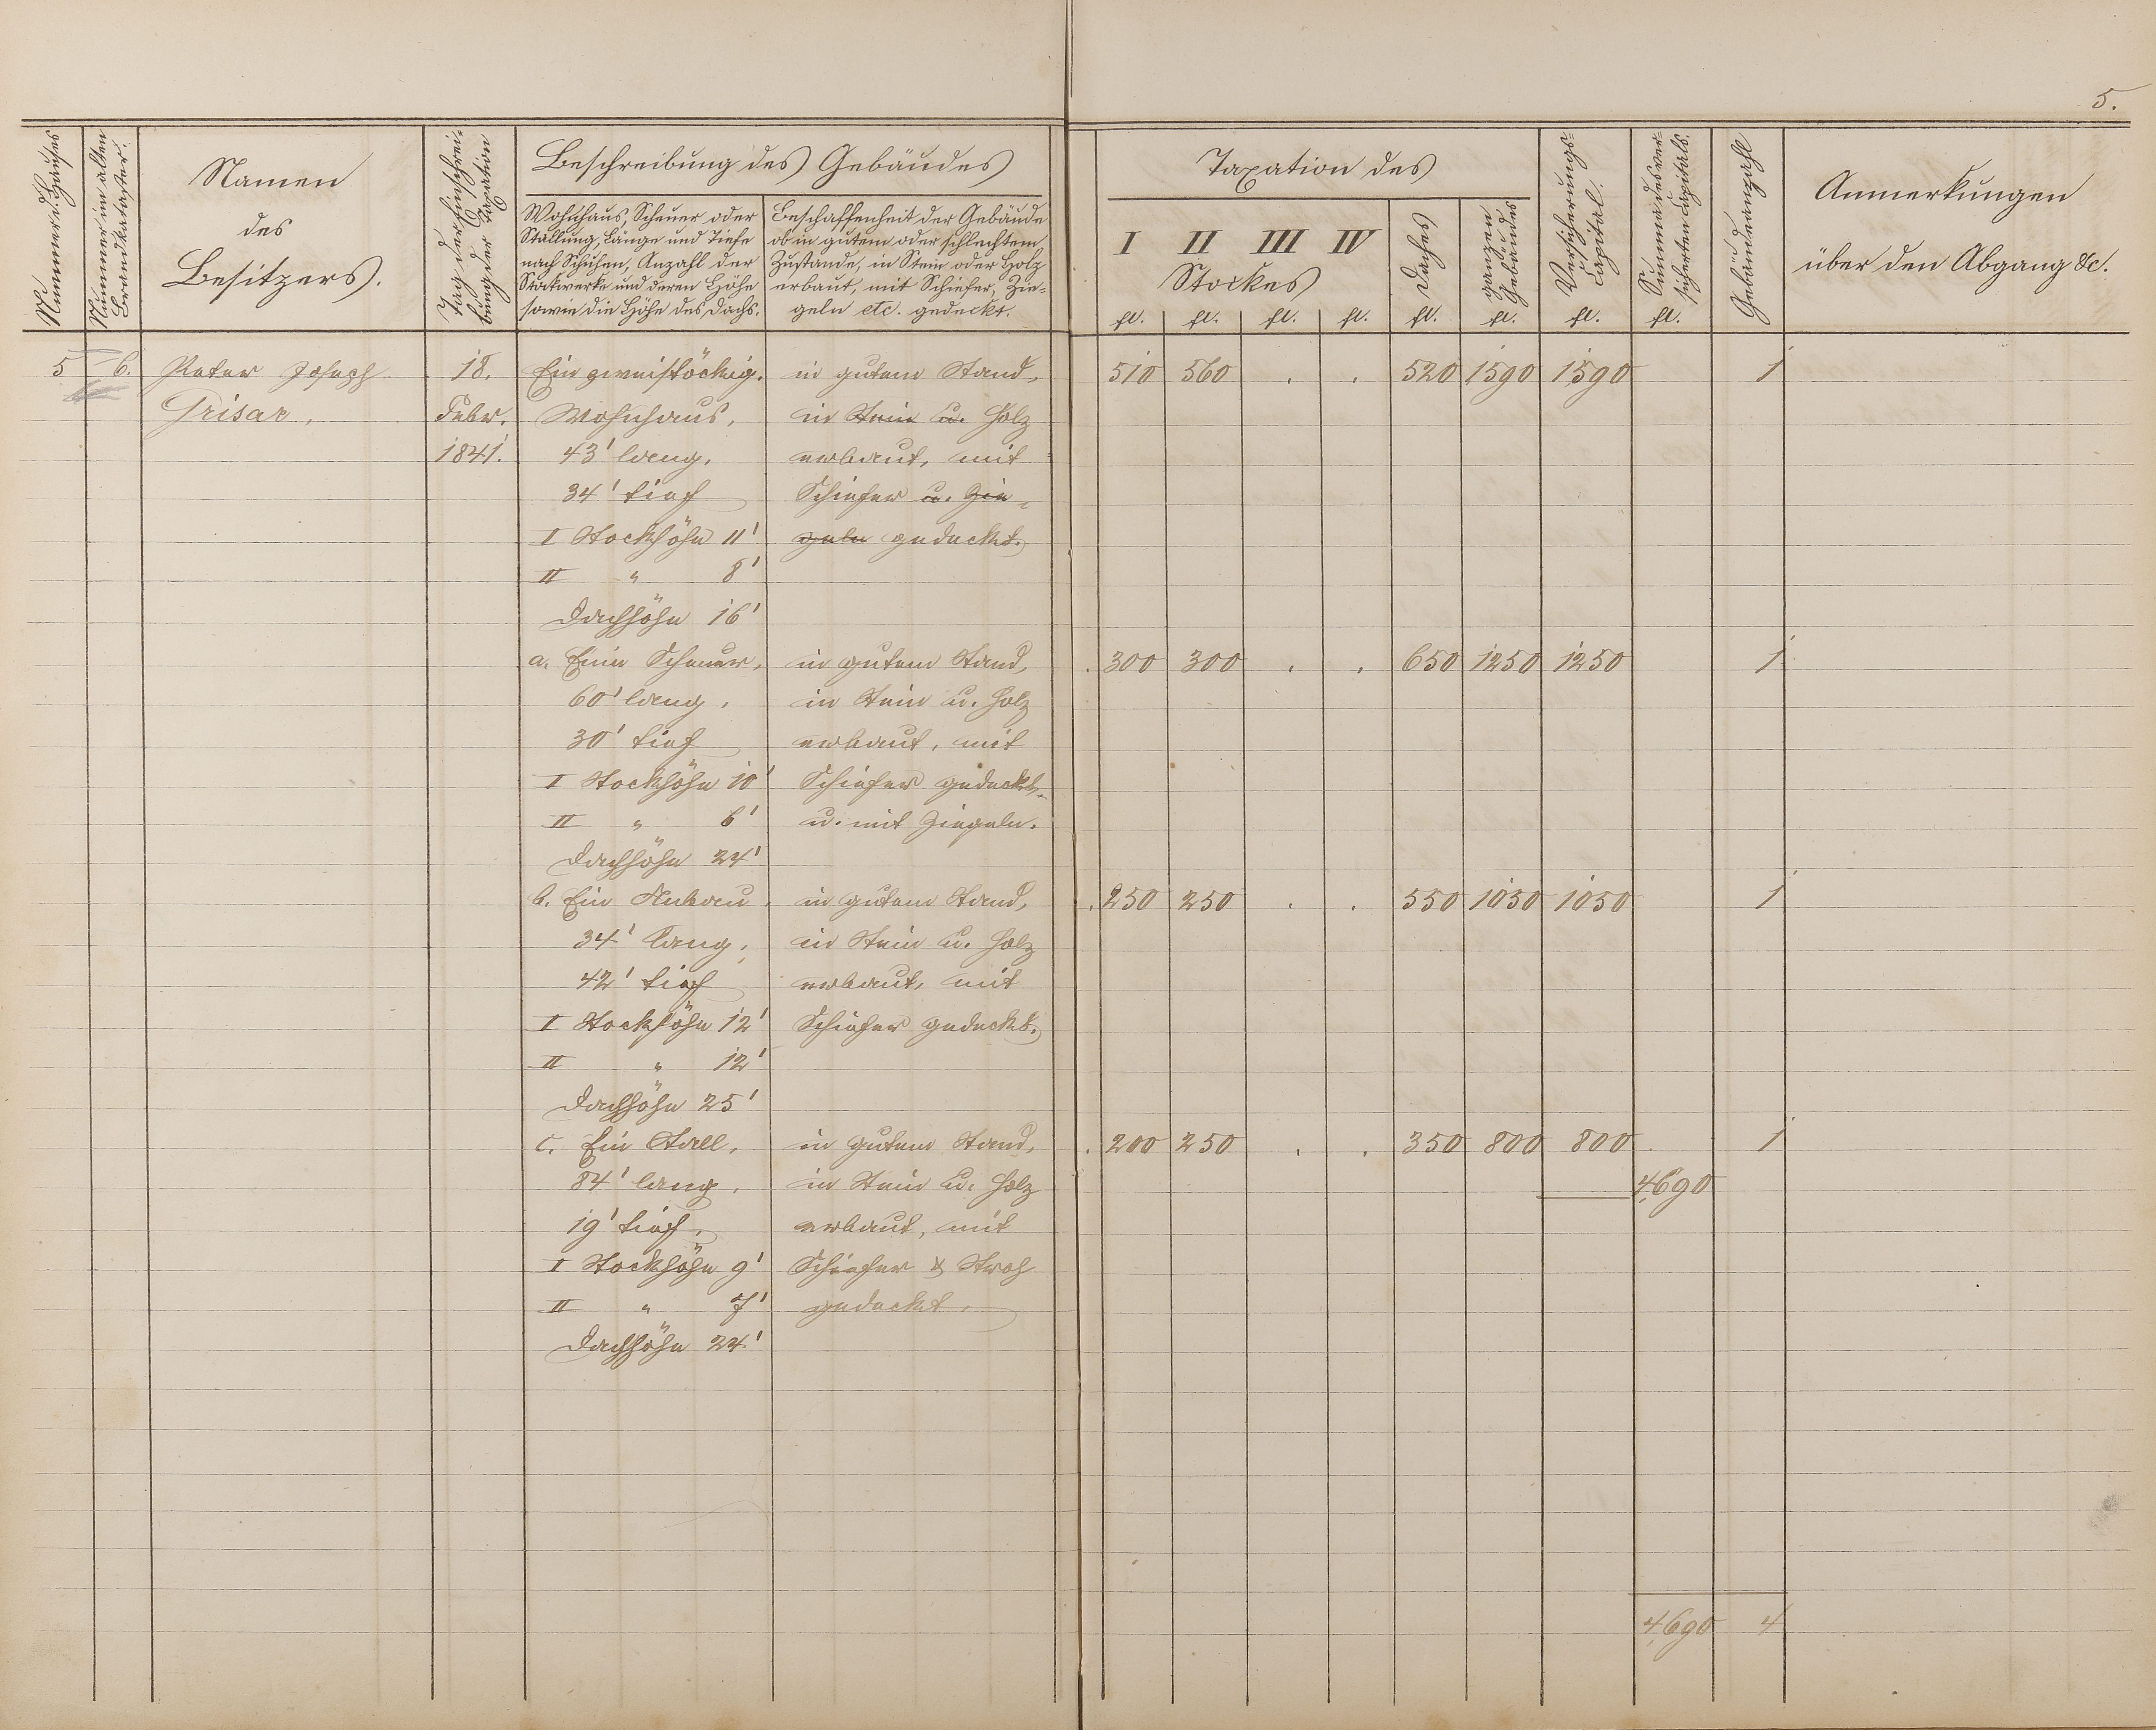 5.
Nummer d. Hauses
Nummer im alten Brandkataster.
Namen
des
Besitzers.
Tag der Einschrei-
bung der Taxation
Beschreibung des Gebäudes
Wohnhaus, Scheuer oder
Stallung, Länge und Tiefe
nach Schuhen, Anzahl der
Stockwerke und deren Höhe
sowie die Höhe des Dachs.
Beschaffenheit der Gebäude
ob in gutem oder schlechtem
Zustande, in Stein oder Holz
erbaut, mit Schiefer, Zie-
geln etc. gedeckt.
Taxation des
I II III IV
Stockes
Daches
ganzen
Gebäudes
Versicherungs-
Capital.
Summa des ver-
sicherten Capitals.
Gebäudeanzahl
Anmerkungen
über den Abgang &c.
fl. fl. fl. fl. fl. fl. fl. fl.
5 6. Peter Joseph 18. Ein zweistöckig. in gutem Stand, 510 560 . . 520 1590 1590 1
Grisar, Febr. Wohnhaus, in Stein u. Holz
1841. 43' lang, erbaut, mit
34' tief Schiefer u. Zie-
I Stockhöhe 11' geln gedeckt.
II " 8'
Dachhöhe 16'
a. Eine Scheuer, in gutem Stand, 300 300 . . 650 1250 1250 1
60' lang, in Stein u. Holz
30' tief erbaut, mit
I Stockhöhe 10' Schiefer gedeckt
II " 6' u. mit Ziegeln.
Dachhöhe 24'
b. Ein Anbau, in gutem Stand, 250 250 . . 550 1050 1050 1
34' lang, in Stein u. Holz
42' tief erbaut, mit
I Stockhöhe 12' Schiefer gedeckt.
II " 12'
Dachhöhe 25'
c. Ein Stall, in gutem Stand, 200 250 . . 350 800 800 1
84' lang, in Stein u. Holz 4,690
19' tief, erbaut, mit
I Stockhöhe 9' Schiefer & Stroh
II " 7' gedeckt.
Dachhöhe 24'
4,690 4